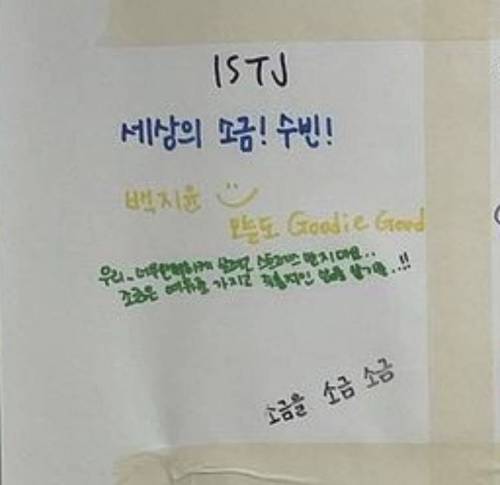 ISTJ
세상의 소금! 수빈!
백지윤
오늘도 Goodie Good
우리.. 너무 완벽하게 살려고 스트레스 받지마요..
조금은 여유를 가지고 인생을 즐기길..!!
소금을 소금 소금